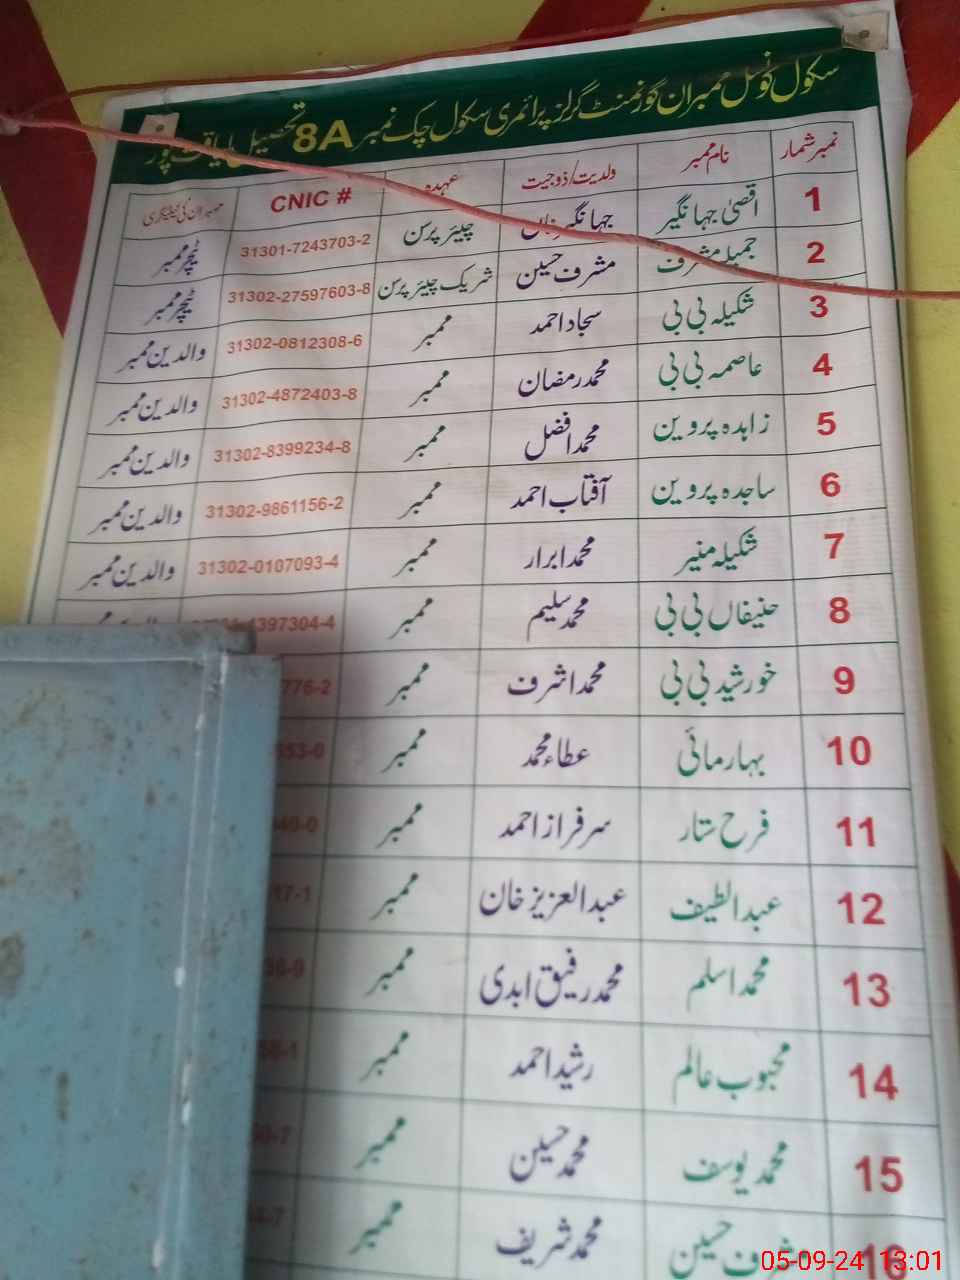 سکول کونسل ممبران گورنمنٹ گرلز پرائمری سکول چک نمبر 8A تحصیل لیاقت پور
نمبر شمار نام ممبر ولدیت/زوجیت عہدہ CNIC # ممبران کی کیٹیگری
1 اقصیٰ جہانگیر جہانگیر خاں چیئر پرسن 31301-7243703-2 ٹیچر ممبر
2 جمیلہ مشرف مشرف حسین شریک چیئر پرسن 31302-27597603-8 ٹیچر ممبر
3 شکیلہ بی بی سجاد احمد ممبر 31302-0812308-6 والدین ممبر
4 عاصمہ بی بی محمد رمضان ممبر 31302-4872403-8 والدین ممبر
5 زاہدہ پروین محمد افضل ممبر 31302-8399234-8 والدین ممبر
6 ساجدہ پروین آفتاب احمد ممبر 31302-9861156-2 والدین ممبر
7 شکیلہ منیر محمد ابرار ممبر 31302-0107093-4 والدین ممبر
8 حنیفاں بی بی محمد سلیم ممبر 4397304-4
9 خورشید بی بی محمد اشرف ممبر 776-2
10 بہار مائی عطاء محمد ممبر 353-0
11 فرح ستار سرفراز احمد ممبر 040-0
12 عبدالطیف عبدالعزیز خان ممبر 17-1
13 محمد اسلم محمد رفیق ابدی ممبر 36-9
14 محبوب عالم رشید احمد ممبر 58-1
15 محمد یوسف محمد حسین ممبر 50-7
16 حسین محمد شریف ممبر 4-7
05-09-24 13:01